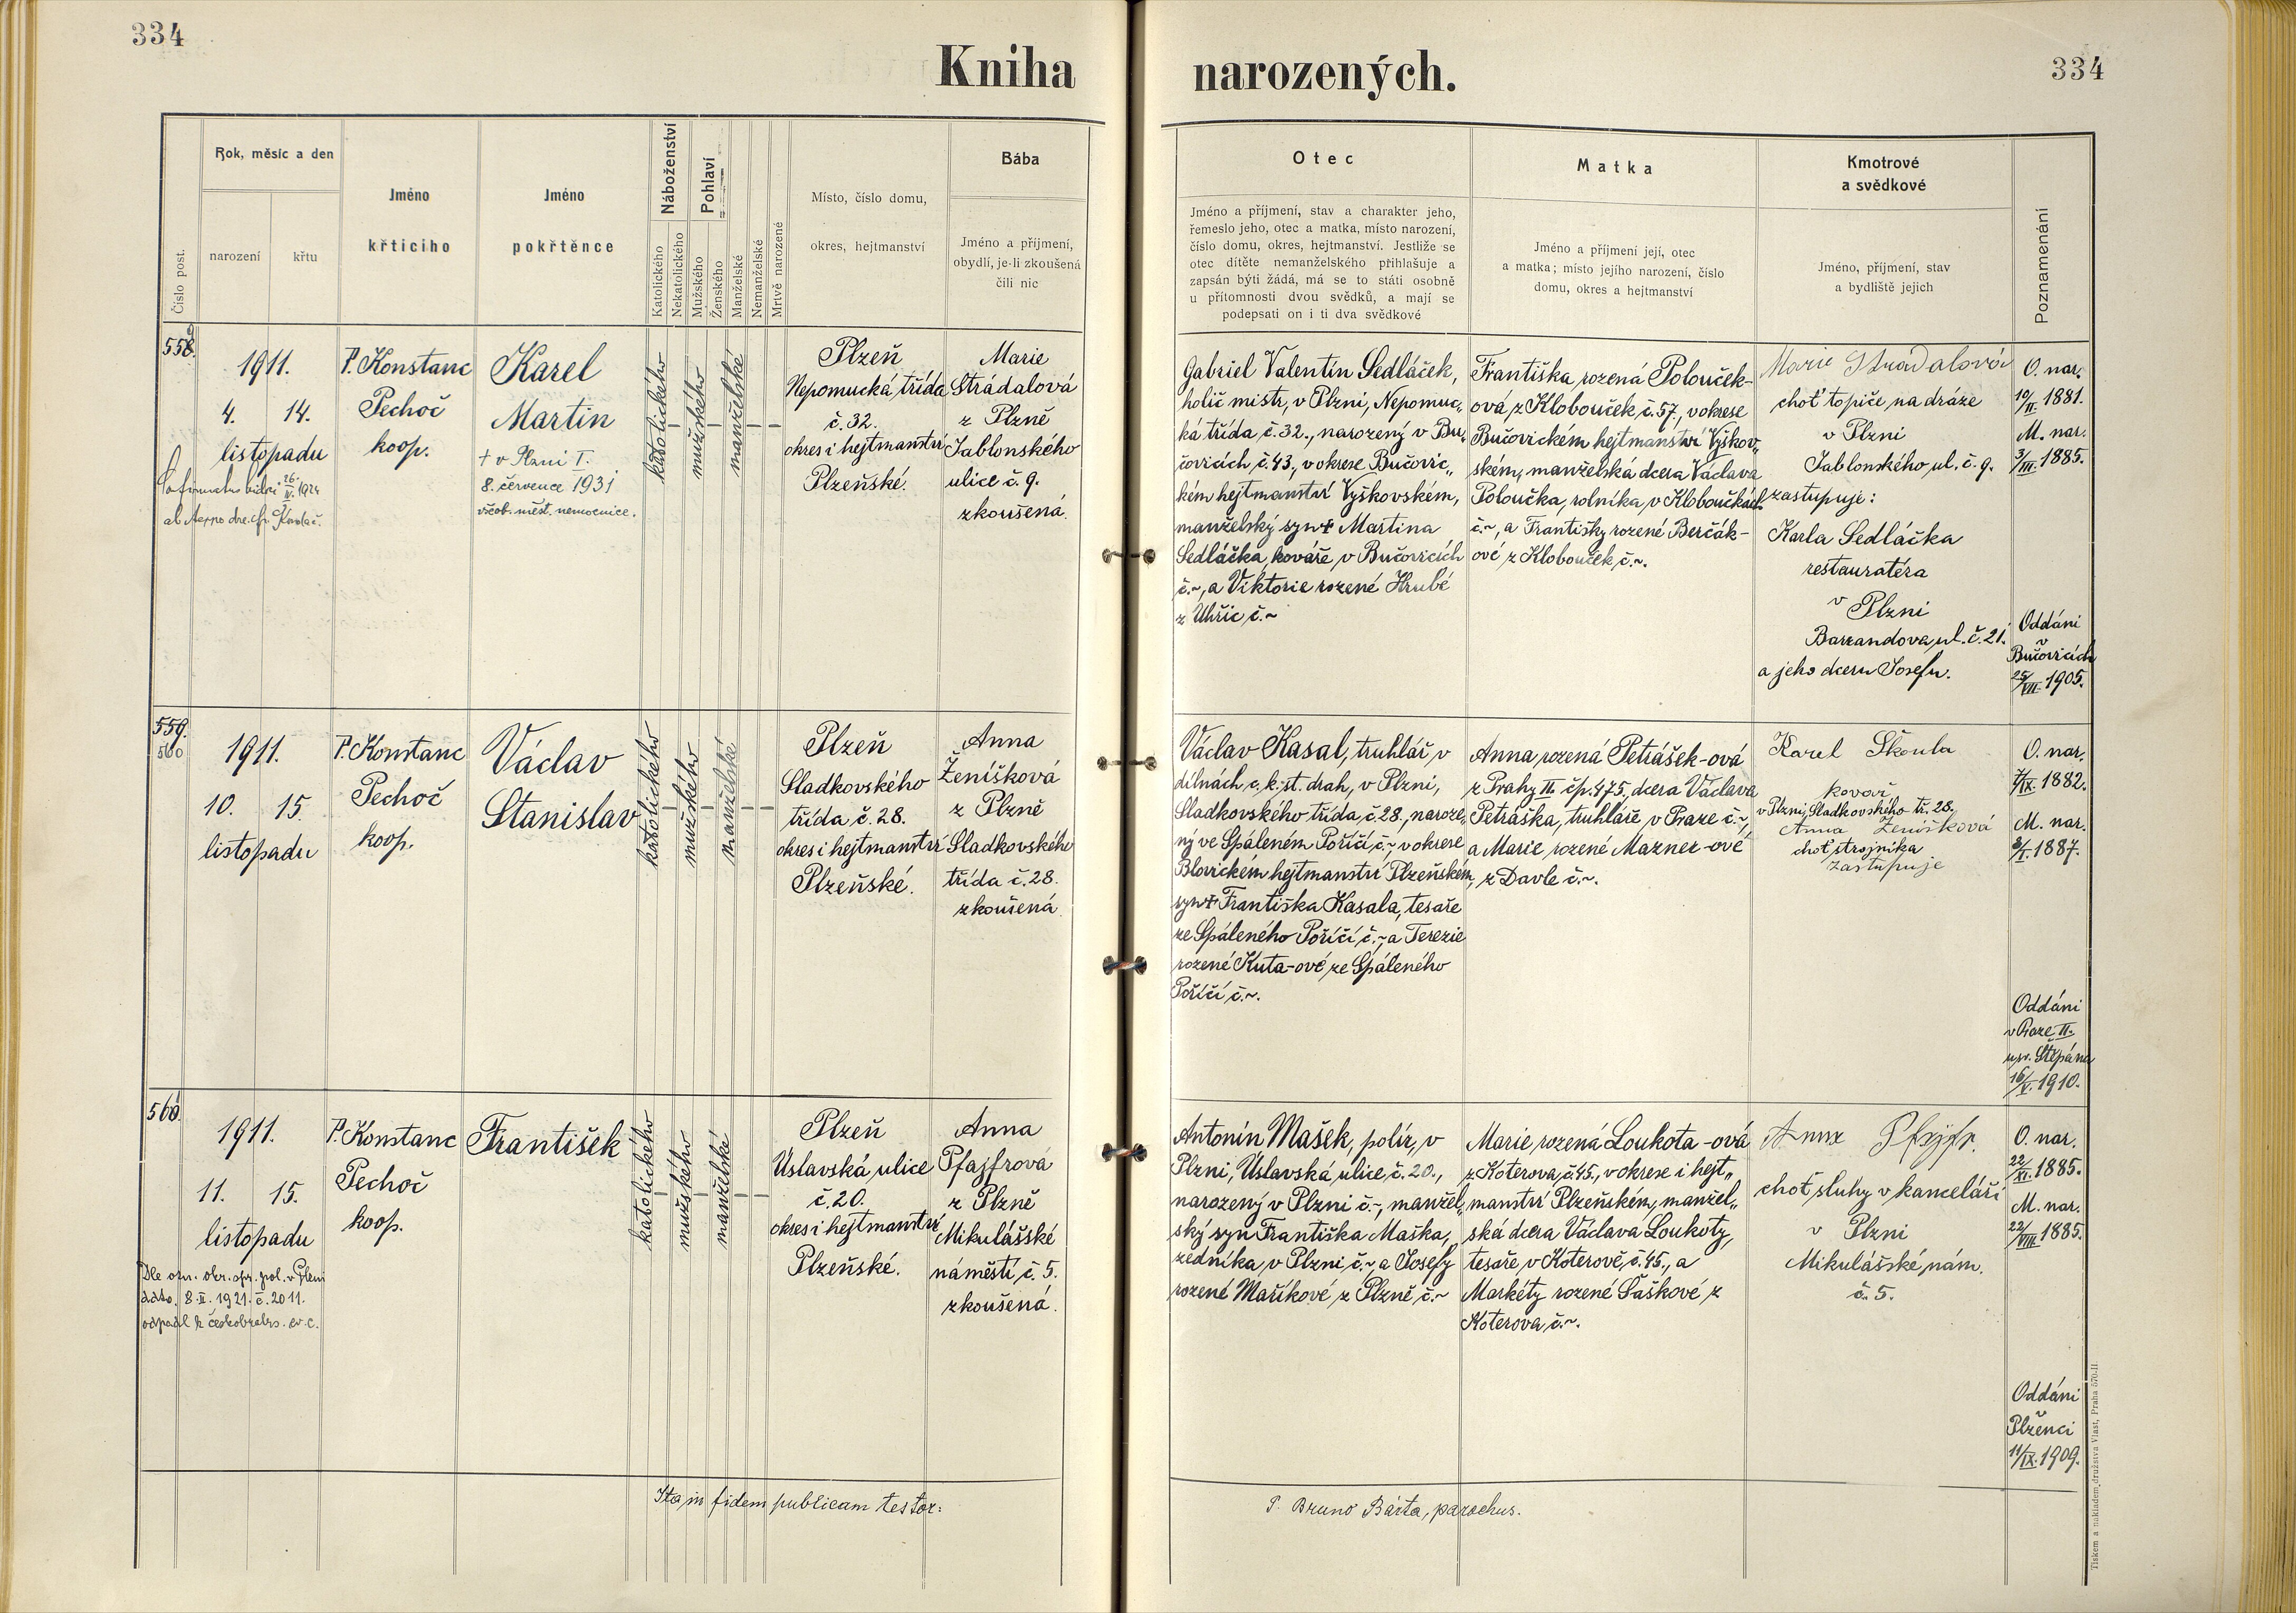 334
334
Kniha narozených.
Číslo post.
Rok, měsíc a den
narození
křtu
Jméno
křtícího
Jméno
pokřtěnce
Náboženství
Katolického
Nekatolického
Pohlaví
Mužského
Ženského
Manželské
Nemanželské
Mrtvě narozené
Místo, číslo domu,
okres, hejtmanství
Bába
Jméno a příjmení,
obydlí, je-li zkoušená
čili nic
Otec
Jméno a příjmení, stav a charakter jeho,
řemeslo jeho, otec a matka, místo narození,
číslo domu, okres, hejtmanství. Jestliže se
otec dítěte nemanželského přihlašuje a
zapsán býti žádá, má se to státi osobně
u přítomnosti dvou svědků, a mají se
podepsati on i ti dva svědkové
Matka
Jméno a příjmení její, otec
a matka; místo jejího narození, číslo
domu, okres a hejtmanství
Kmotrové
a svědkové
Jméno, příjmení, stav
a bydliště jejich
Poznamenání
558.
1911.
4. 14.
listopadu
26. IV. 1924
P. Konstanc
Pechoč
koop.
Karel
Martin
+ v Plzni I.
8. července 1931
všeob. měst. nemocnice.
katolického
mužského
manželské
Plzeň
Nepomucká třída
č. 32.
okres i hejtmanství
Plzeňské.
Marie
Strádalová
z Plzně
Jablonského
ulice č. 9.
zkoušená.
Gabriel Valentin Sedláček,
holič mistr, v Plzni, Nepomuc„
ká třída, č. 32., narozený v Bu„
čovicích, č. 43., v okrese Bučovic„
kém hejtmanství Vyškovském,
manželský syn + Martina
Sedláčka, kováře, v Bučovicích
č. ~, a Viktorie rozené Hrubé
z Uhřic č. ~
Františka rozená Polouček-
ová z Klobouček, č. 57., v okrese
Bučovickém hejtmanství Vyškov„
ském, manželská dcera Václava
Poloučka, rolníka, v Kloboučkách
č. ~, a Františky rozené Berčák-
ové z Klobouček, č. ~.
Marie Strádalová
choť topiče na dráze
v Plzni
Jablonského ul. č. 9.
zastupuje:
Karla Sedláčka
restauratéra
v Plzni
Barrandova, ul. č. 21.
a jeho dceru Josefu.
O. nar.
10/II. 1881.
M. nar.
3/III. 1885.
Oddáni
v
Bučovicích
25/VII. 1905.
559.
560
1911.
10. 15.
listopadu
P. Konstanc
Pechoč
koop.
Václav
Stanislav
katolického
mužského
manželské
Plzeň
Sladkovského
třída č. 28.
okres i hejtmanství
Plzeňské.
Anna
Ženíšková
z Plzně
Sladkovského
třída č. 28.
zkoušená.
Václav Kasal, truhlář v
dílnách c. k. st. drah, v Plzni,
Sladkovského třída, č. 28., naroze„
ný ve Spáleném Poříčí č. ~, v okrese
Blovickém hejtmanství Plzeňském,
syn + Františka Kasala, tesaře
ze Spáleného Poříčí, č. ~, a Terezie
rozené Kuta-ové ze Spáleného
Poříčí č. ~.
Anna rozená Petrášek-ová
z Prahy II. čp. 475., dcera Václava
Petráška, truhláře v Praze č. ~,
a Marie rozené Mazner-ové
z Davle č. ~.
Karel Škoula
kovář
v Plzni, Sladkovského tř. 28.
Anna Ženíšková
choť strojníka
zastupuje
O. nar.
7/IX. 1882.
M. nar.
6/I. 1887.
Oddáni
v Praze II.
u sv. Štěpána
16/V. 1910.
560.
1911.
11. 15.
listopadu
Dle ozn. okr. spr. pol. v Plzni
ddto. 8. II. 1921. č. 2011.
odpadl k českobratrs. ev. c.
P. Konstanc
Pechoč
koop.
František
katolického
mužského
manželské
Plzeň
Úslavská ulice
č. 20.
okres i hejtmanství
Plzeňské.
Anna
Pfajfrová
z Plzně
Mikulášské
náměstí, č. 5.
zkoušená.
Antonín Mašek, polír, v
Plzni, Úslavská ulice, č. 20.,
narozený v Plzni č. ~, manžel„
ský syn Františka Maška,
zedníka, v Plzni č. ~, a Josefy
rozené Maříkové z Plzně č. ~
Marie rozená Loukota-ová
z Koterova, č. 45., v okrese i hejt„
manství Plzeňském, manžel„
ská dcera Václava Loukoty,
tesaře, v Koterově, č. 45., a
Markéty rozené Šaškové z
Koterova, č. ~.
Anna
choť sluhy v kanceláři
v Plzni
Mikulášské nám.
č. 5.
O. nar.
22/VI. 1885.
M. nar.
22/VIII. 1885.
Oddáni
v
Plzenci
11/IX. 1909.
Ita in fidem publicam testor:
P. Bruno Bárta, parochus.
Tiskem a nákladem družstva Vlast, Praha 570-II